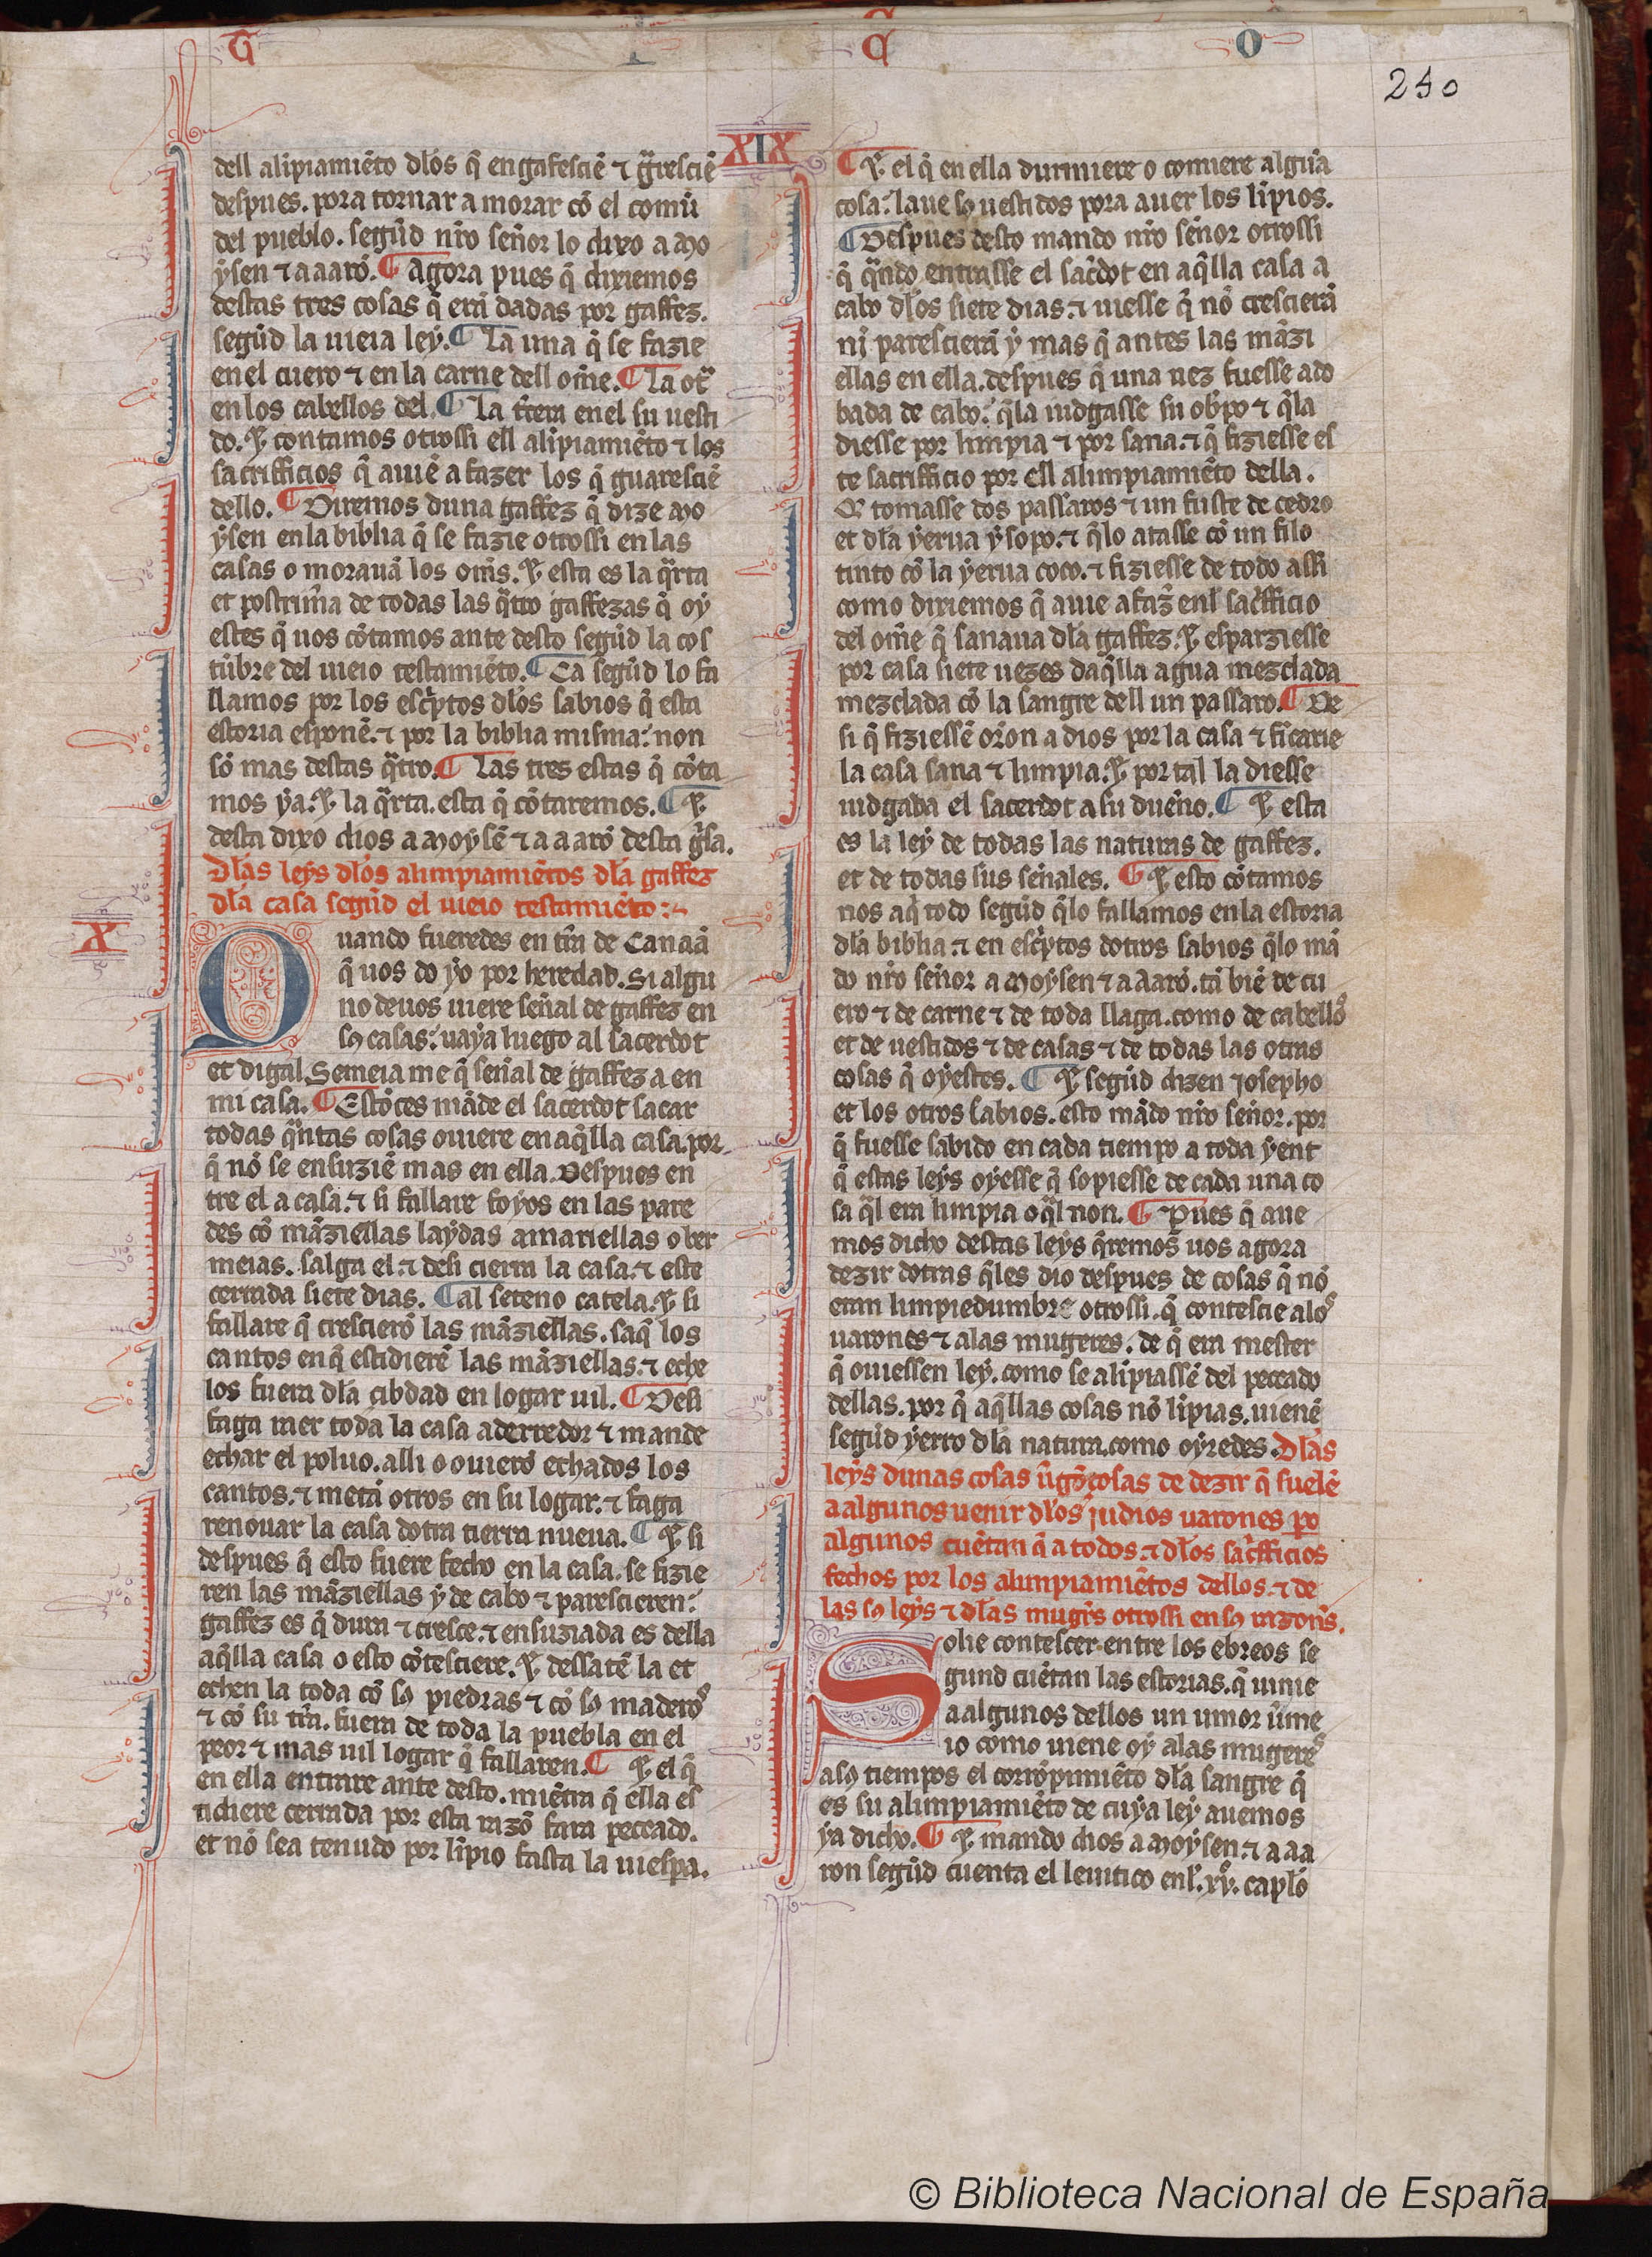 T I C O
250
XIX
dell alipiamiẽto dlos q̃ engafesciẽ ⁊ gͣresciẽ
despues. pora tornar a morar cõ el comũ
del pueblo. segũd nr̃o señor lo dixo a mo
ysen ⁊ a aarõ. ¶ Agora pues q̃ dixiemos
destas tres cosas q̃ erã dadas por gaffez.
segũd la uieia ley. ¶ La una q̃ se fazie
en el cuero ⁊ en la carne dell om̃e. ¶ La otͣ
en los cabellos del. ¶ La t̃cera en el su uesti
do. ⁊ contamos otrossi ell alipiamiẽto ⁊ los
sacrifficios q̃ auiẽ a fazer los q̃ guaresciẽ
dello. ¶ Diremos duna gaffez q̃ dize mo
ysen en la biblia q̃ se fazie otrossi en las
casas o morauã los om̃s. ⁊ esta es la qͣrta
et postrim̃a de todas las qͣtro gaffezas q̃ oy
estes q̃ uos cõtamos ante desto segũd la cos
tũbre del uieio testamiẽto. ¶ Ca segũd lo fa
llamos por los escͥptos dlos sabios q̃ esta
estoria esponẽ. ⁊ por la biblia misma: non
sõ mas destas qͣtro. ¶ Las tres estas q̃ cõta
mos ya. ⁊ la qͣrta. esta q̃ cõtaremos. ¶ ⁊
desta dixo dios a moysẽ ⁊ a aarõ desta gͥsa.
Dlas leys dlos alimpiamiẽtos dla gaffez
dla casa segũd el uieio testamiẽto:~
X
Quando fueredes en tr̃a de Canaã
q̃ uos do yo por heredad. Si algu
no de uos uiere señal de gaffez en
sꝯ casas: uaya luego al sacerdot
et digal. Semeia me q̃ señal de gaffez a en
mi casa. ¶ Estõces mãde el sacerdot sacar
todas qͣntas cosas ouiere en aq̃lla casa. por
q̃ nõ se ensuziẽ mas en ella. Despues en
tre el a casa. ⁊ si fallare foyos en las pare
des cõ mãziellas laydas amariellas o ber
meias. salga el. ⁊ desi cierra la casa. ⁊ este
cerrada siete dias. ¶ al seteno catela. ⁊ si
fallare q̃ crescierõ las mãziellas. saq̃ los
cantos en q̃ estidierẽ las mãziellas. ⁊ eche
los fuera dla çibdad en logar uil. ¶ Desi
faga raer toda la casa aderredor ⁊ mande
echar el poluo. alli o ouierõ echados los
cantos. ⁊ metã otros en su logar. ⁊ faga
renouar la casa dotra tierra nueua. ¶ ⁊ si
despues q̃ esto fuere fecho en la casa. se fizie
ren las mãziellas y de cabo ⁊ parescieren:
gaffez es q̃ dura ⁊ cresce. ⁊ ensuziada es della
aq̃lla casa o esto cõtesciere. ⁊ dessatẽ la et
echen la toda cõ sꝯ piedras ⁊ cõ sꝯ maderos
⁊ cõ su tr̃a. fuera de toda la puebla en el
peor ⁊ mas uil logar q̃ fallaren. ¶ ⁊ el q̃
en ella entrare ante desto. miẽtra q̃ ella es
tidiere cerrada por esta razõ fara peccado.
et nõ sea tenudo por lĩpio fasta la uiespa.
¶ ⁊ el q̃ en ella durmiere o comiere algũa
cosa: laue sꝯ uestidos pora auer los lĩpios.
¶ Despues desto mando nr̃o señor otrossi
q̃ qͣndo entrasse el sac̃dot en aq̃lla casa a
cabo dlos siete dias. ⁊ uiesse q̃ nõ crescierã
ni parescierã y mas q̃ antes las mãzi
ellas en ella. despues q̃ una uez fuesse ado
bada de cabo: q̃la iudgasse su obpo ⁊ q̃la
diesse por limpia ⁊ por sana. ⁊ q̃ fiziesse es
te sacrifficio por ell alimpiamiẽto della.
Et tomasse dos passaros ⁊ un fuste de cedro
et dla yerua ysopo. ⁊ q̃lo atasse cõ un filo
tinto cõ la yerua coco. ⁊ fiziesse de todo assi
como dixiemos q̃ auie a faz̃ enl sacͥfficio
del om̃e q̃ sanaua dla gaffez. ⁊ esparziesse
por casa siete uezes daq̃lla agua mezclada
mezclada cõ la sangre dell un passaro. ¶ De
si q̃ fiziessẽ or̃on a dios por la casa ⁊ ficarie
la casa sana ⁊ limpia. ⁊ por tal la diesse
iudgada el sacerdot a su dueño. ¶ ⁊ esta
es la ley de todas las naturas de gaffez.
et de todas sus señales. ¶ ⁊ esto cõtamos
nos aq̃ todo segũd q̃lo fallamos en la estoria
dla biblia. ⁊ en escͥptos dotros sabios q̃lo mã
do nr̃o señor a Moysen ⁊ a aarõ. tã biẽ de cu
ero ⁊ de carne ⁊ de toda llaga. como de cabellos
et de uestidos ⁊ de casas ⁊ de todas las otras
cosas q̃ oyestes. ¶ ⁊ segũd dizen iosepho
et los otros sabios. esto mãdo nr̃o señor. por
q̃ fuesse sabido en cada tiempo a toda yent
q̃ estas leys oyesse q̃ sopiesse de cada una co
sa qͣl era limpia o qͣl non. ¶ Pues q̃ aue
mos dicho destas leys q̃remos uos agora
dezir dotras q̃les dio despues de cosas q̃ nõ
eran limpiedumbre otrossi. q̃ contescie alos
uarones ⁊ alas mugeres. de q̃ era mester
q̃ ouiessen ley. como se alĩpiassẽ del peccado
dellas. por q̃ aq̃llas cosas nõ lĩpias. uienẽ
segũd yerro dla natura. como oyredes. Dlas
leys dunas cosas ũgõçosas de dezir q̃ suelẽ
a algunos uenir dlos judios uarones po
algunos cuẽtan q̃ a todos. ⁊ dlos sacͥfficios
fechos por los alimpiamiẽtos dellos. ⁊ de
las sꝯ leys ⁊ dlas mugr̃s otrossi en sꝯ razon̄s.
Solie contescer entre los ebreos se
gund cuẽtan las estorias. q̃ uinie
a algunos dellos un umor ũme
io como uiene oy alas mugeres
a sꝯ tiempos el corrõpimiẽto dla sangre q̃
es su alimpiamiẽto de cuya ley auemos
ya dicho. ¶ ⁊ mando dios a moysen. ⁊ a aa
ron segũd cuenta el leuitico enl. xvͦ. caplo
© Biblioteca Nacional de España